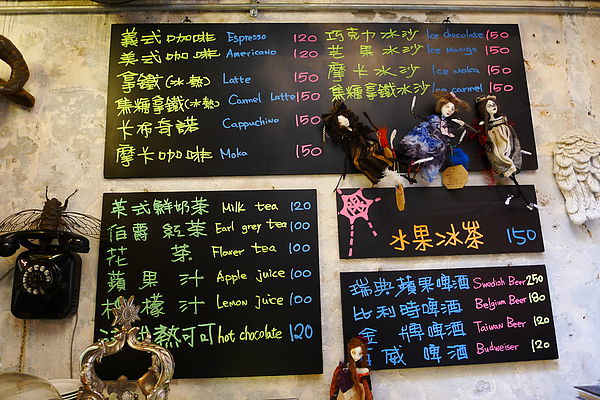 義式咖啡 Espresso 120
美式咖啡 Americano 120
拿鐵(冰熱) Latte 150
焦糖拿鐵(冰熱) Carmel Latte 150
卡布奇諾 Cappuchino 150
摩卡咖啡 Moka 150
巧克力冰沙 Ice chocolate 150
芒果冰沙 Ice Mango 150
摩卡冰沙 Ice moka 150
焦糖拿鐵冰沙 Ice carmel 150
英式鮮奶茶 Milk tea 120
伯爵紅茶 Earl grey tea 100
花茶 Flower tea 100
蘋果汁 Apple juice 100
檸檬汁 Lemon juice 100
熱可可 hot chocolate 120
水果冰茶 150
瑞典蘋果啤酒 Swedish Beer 250
比利時啤酒 Belgium Beer 180
金牌啤酒 Taiwan Beer 120
威啤酒 Budweiser 120